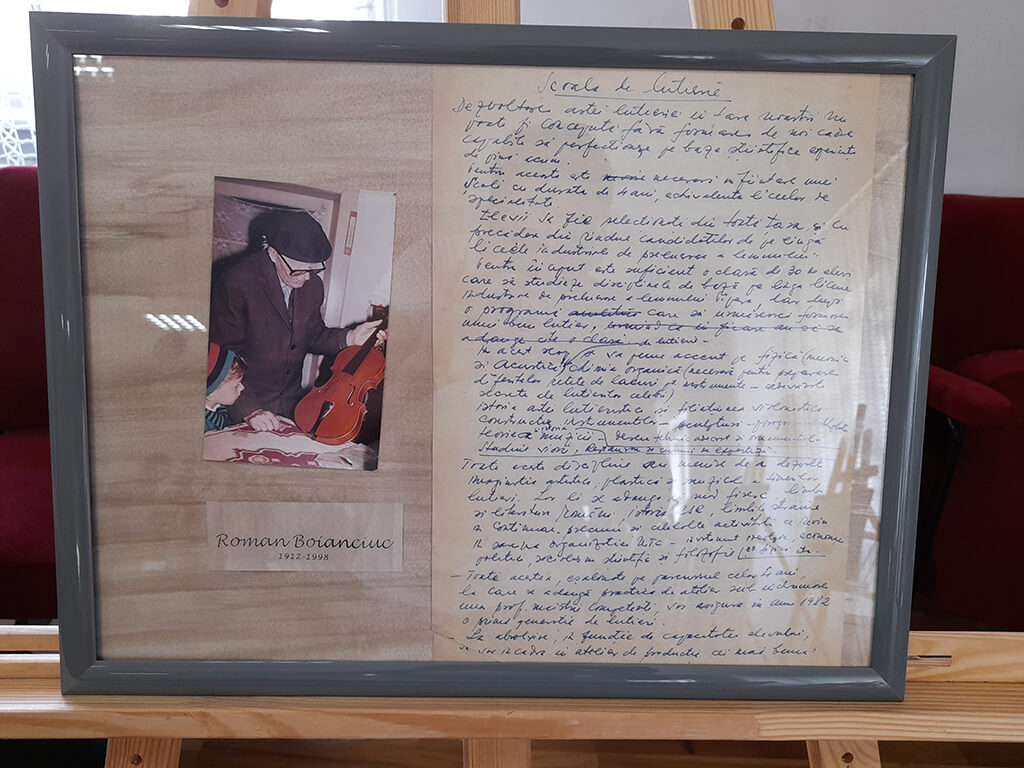 Roman Boianciuc
1912-1998
Școala de lutierie
Dezvoltarea artei lutieriei în țara noastră nu
poate fi concepută fără formarea de noi cadre
capabile să perfecționeze pe baze științifice experiența
de până acum.
Pentru aceasta este necesară înființarea unei
școli cu durata de 4 ani, echivalentă liceelor de
specialitate.
Elevii să fie selectionați din toată țara și cu
precădere din rîndul candidaților de pe lîngă
liceele industriale de prelucrare a lemnului.
Pentru început este suficient o clasă de 30 de elevi
care să studieze disciplinele de bază pe lîngă liceul
industrial de prelucrare a lemnului, dar după
o programă care să urmărească formarea
unui bun lutier,
adauge cîte o clasă de lutierie -
În acest scop se va pune accent pe fizică (mecanică
și acustică), chimia organică (necesară pentru prepararea
diferitelor rețete de lacuri pt. instrumente -
secrete de lutierilor celebri)
istoria artei lutieristice și
construcția instrumentelor - sculptură - pirogravură -
teoria istoria muzicii - desen tehnic și ornamental -
studiul viorii, Restaurări
Toate aceste discipline au menirea de a dezvolta
imaginația artistică, plastică și muzicală a tinerilor
lutieri. La ele se adaugă în mod firesc limba
și literatura română, istoria, limbile străine
în continuare, precum și celelalte activități
în cadrul organizației UTC - economie
politică, socialism științific și filozofie
- Toate acestea, eșalonate pe parcursul celor 4 ani,
la care se adaugă practica de atelier sub îndrumarea
unor prof. meiștri competenți, vor asigura în anul 1982
o primă generație de lutieri.
- La absolvire, în funcție de capacitatea elevului,
se vor încadra în atelier de producție cei mai buni